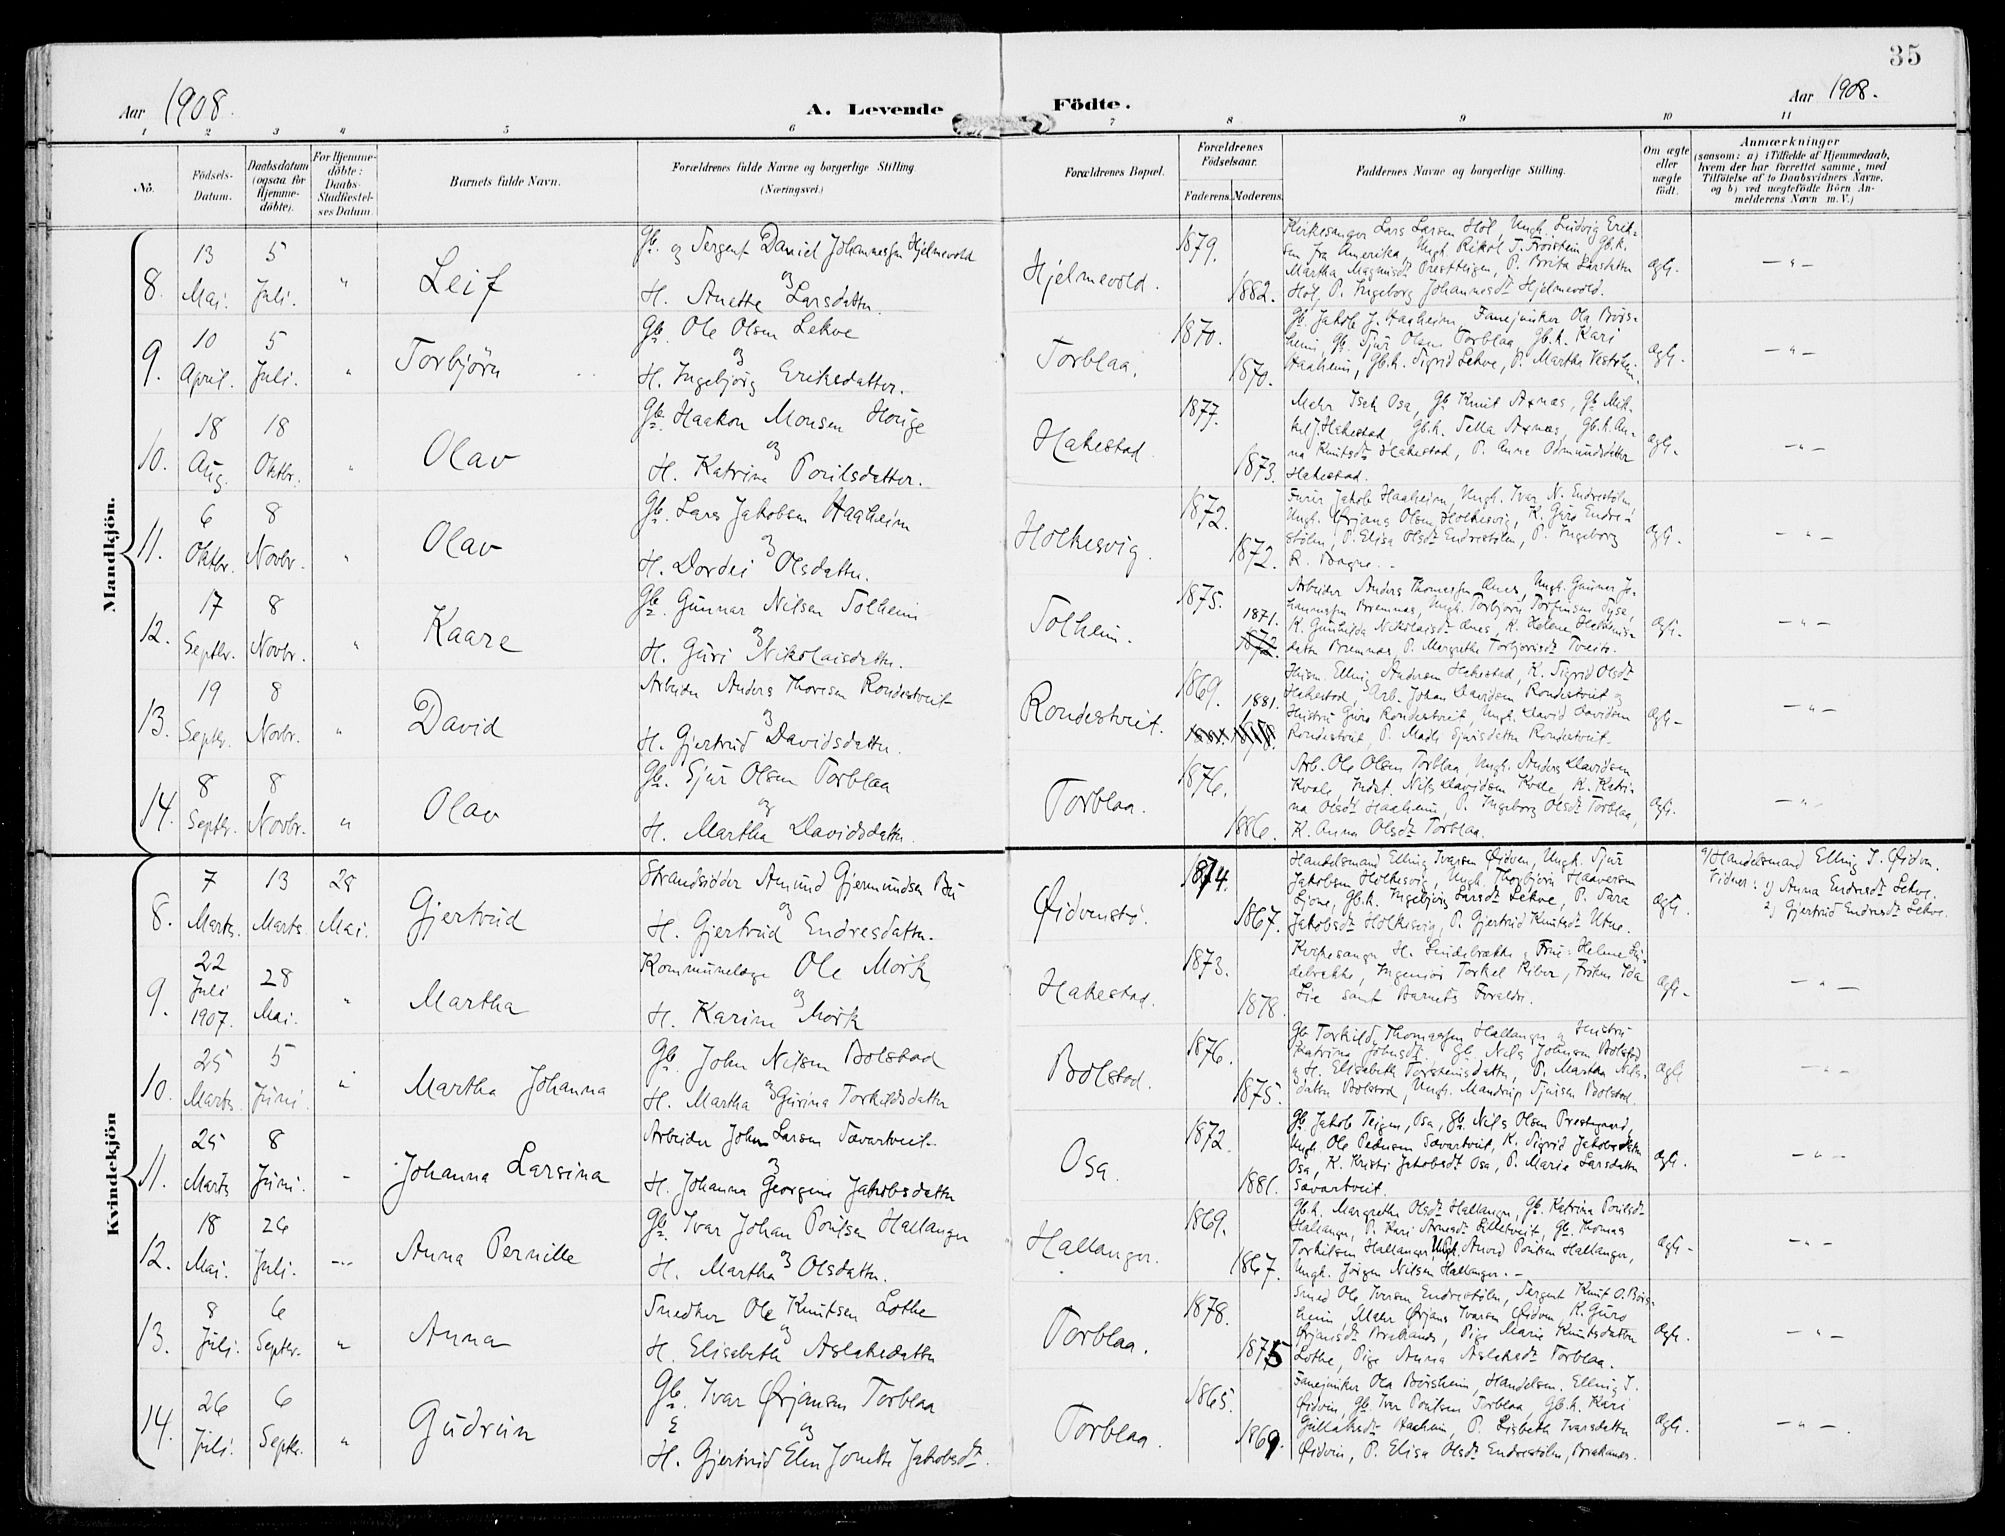 35
Aar 1908.
A. Levende Födte.
Aar 1908.
1 2 3 4 5 6 7 8 9 10 11
No.
Födsels-Datum.
Daabsdatum (ogsaa for Hjemme-döbte).
For Hjemme-döbte: Daabs-Stadfæstel-ses Datum.
Barnets fulde Navn.
Forældrenes fulde Navne og borgerlige Stilling (Næringsvei.)
Forældrenes Bopæl.
Forældrenes Födselsaar.
Faderens. Moderens.
Faddernes Navne og borgerlige Stilling.
Om ægte eller uægte födt.
Anmærkninger
(saasom: a) i Tilfælde af Hjemmedaab,
hvem der har forrettet samme, med
Tilföielse af to Daabsvidners Navne,
og b) ved uægtefödte Börn An-
melderens Navn m. V.)
Mandkjön.
8. 13 Mai. 5 Juli. " Leif
Gb. og Sergent Daniel Johannessen Hjelmevold
og
H. Anette Larsdatter.
Hjelmevold. 1879. 1882.
Kirkesanger Lars Larsen Hol, Ungk. Ludvig Erik-
sen fra Amerika, Ungk. Rikol T. Trøistein, Gb.k.
Martha Magnusdt Prestteigen, P. Brita Larsdatter
Hol, P. Ingeborg Johannesdt Hjelmevold.
Ægte. — " —
9. 10 April. 5 Juli. " Torbjörn
Gb. Ole Olsen Lekve
og
H. Ingebjørg Eriksdatter.
Torblaa. 1870. 1870.
Gb. Jakob J. Haaheim, Fanejunker Ola Børs-
heim, Gb. Sjur Olsen Torblaa, Gb.k. Kari
Haaheim, Gb.k. Sigrid Lekve, P. Martha Vestrheim.
Ægte. — " —
10. 18 Aug. 18 Oktbr. " Olav
Gb. Haakon Monsen Houge
og
H. Katrina Poulsdatter.
Hakestad. 1877. 1873.
Gb. Knut Axnæs, Gb. Mik-
kel J. Hakestad, Gb.k. Axnæs, Gb.k. An-
na Knutsdt Hakestad, P. Anne Odmundsdatter
Hakestad.
Ægte. — " —
11. 6 Oktbr. 8 Novbr. " Olav
Gb. Lars Jakobsen Haaheim
og
H. Dordei Olsdatter.
Holkesvig. 1872. 1872.
Jakob Haaheim, Ungk. Ivar N. Endrestølen,
Ungk. Ørjans Olsen Holkesvig, K. Guro Endre-
stølen, P. Elisa Olsdt Endrestølen, P. Ingeborg
R.
Ægte. — " —
12. 17 Septbr. 8 Novbr. " Kaare
Gb. Gunnar Nilsen Solheim
og
H. Guri Nikolaisdatter.
Solheim. 1875. 1871. 1872.
Arbeider Anders Thomassen Ænes, Ungk. Gunnar Jo-
hannessen Bremnæs, Ungk. Torbjørn Torfinsen Tyse,
K. Gunhilda Nikolaisdt Ænes, K. Helene
datter Bremnæs, P. Margrethe Torbjørnsdt Tveit.
Ægte. — " —
13. 19 Septbr. 8 Novbr. " David
Arbeider Anders Thoresen Rondestveit
og
H. Gjertrud Davidsdatter.
Rondestveit. 1869. 1881.
Husm. Elling Andersen Hakestad, K. Sigrid Olsdt
Hakestad, Arb. Johan Davidsen Rondestveit og
Hustru Guro Rondestveit, Ungk. David Davidsen
Rondestveit, P. Madli Sjursdatter Rondestveit.
Ægte — " —
14. 8 Septbr. 8 Novbr. " Olav
Gb. Sjur Olsen Torblaa
og
H. Martha Davidsdatter.
Torblaa. 1876. 1886.
Arb. Ole Olsen Torblaa, Ungk. Anders Davidsen
Kvale, Indst. Nils Davidsen Kvale, K. Katri-
na Olsdt Haaheim, P. Ingeborg Olsdt Torblaa,
K. Anna Olsdt Torblaa.
Ægte. — " —
Kvindekjön
8. 7 Marts. 13 Marts. 28 Mai. Gjertrud
Strandsidder Amund Gjermundsen Bu
og
H. Gjertrud Endresdatter.
Øidvenstø. 1874. 1867.
Handelsmand Elling Ivarsen Øidven, Ungk. Sjur
Jakobsen Holkesvig, Ungk. Thorbjørn Haaversen
Ljone, Gb.k. Ingebjørg Larsdt Lekve, P. Sara
Jakobsdt Holkesvig, P. Gjertrud Knutsdt Utne.
Ægte.
a) Handelsmand Elling I. Øidven.
Vidner: 1) Anna Endresdt Lekve.
2) Gjertrud Endresdt Lekve.
9. 22 Juli 1907. 28 Mai. " Martha
Kommunelæge Ole Mork
og
H. Karine Mork
Hakestad. 1873. 1878.
Kirkesanger H. Lindebrække, Frue Helene Lin-
debrække, Ingeniør Torkel Riber, Frøken Ida
Lie samt Barnets Foreldre.
Ægte. — " —
10. 25 Marts. 5 Juni. " Martha Johanna
Gb. John Nilsen Bolstad
og
H. Martha Gurina Torkildsdatter
Bolstad. 1876. 1875.
Gb. Torkild Thomassen Hallanger og Hustru
Katrina Johnsdt, Gb. Nils Johnsen Bolstad
og H. Elisabeth Torsteinsdatter, P. Martha Nils-
datter Bolstad, Ungk. Mandrup Sjursen Bolstad.
Ægte — " —
11. 25 Marts 8 Juni. " Johanna Larsina
Arbeider John Larsen Sævartveit.
og
H. Johanna Georgine Jakobsdatter
Osa. 1872. 1881.
Gb. Jakob Teigen, Osa, Gb. Nils Olsen Prestegaard,
Ungk. Ole Pedersen Sævartveit, K. Sigrid Jakobsdatter
Osa, K. Kristi Jakobsdt Osa, P. Maria Larsdatter
Sævartveit.
Ægte. — " —
12. 18 Mai. 26 Juli. — " — Anna Pernille
Gb. Ivar Johan Poulsen Hallanger
og
H. Martha Olsdatter.
Hallanger. 1869. 1867.
Gb.k. Margrethe Olsdt Hallanger, Gb. Katrina Poulsdt
Hallanger, P. Kari Arnesdt, Gb. Thomas
Torkilsen Hallanger, Ungk. Amund Poulsen Hallanger,
Ungk. Jørgen Nilsen Hallanger. —
Ægte — " —
13. 8 Juli. 6 Septbr. " Anna
Snedker Ole Knutsen Lothe
og
H. Elisabeth Aslaksdatter
Torblaa. 1878. 1875
Smed Ole Iversen Endrestølen, Sergent Knut O. Børs-
heim, Ørjans Ivarsen Øidven, K. Guro
Ørjansdt Brakanes, Pige Marie Knutsdatter
Lothe, Pige Anna Aslaksdt Torblaa.
Ægte. — " —
14. 26 Juli. 6 Septbr. " Gudrun
Gb. Ivar Ørjansen Torblaa
og
H. Gjertrud Elen Jonette Jakobsdt.
Torblaa. 1865. 1869
Fanejunker Ola Børsheim, Handelsm. Elling I.
Øidvin, Gb. Ivar Poulsen Torblaa, Gb.k. Kari
Haaheim, P. Lisbeth Ivarsdatter
Øidvin, P. Elisa Olsdt Endrestølen, Brakanes.
Ægte. — " —